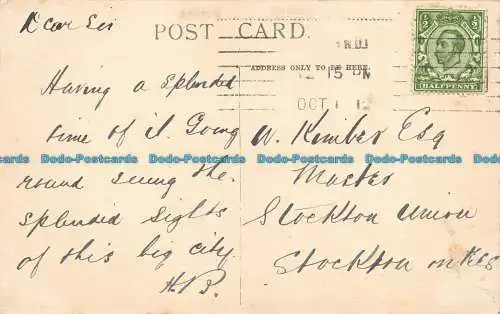 Dear Sir
POST CARD.
ADDRESS ONLY TO BE HERE.
12 15 PM
OCT 1 12
HALFPENNY
Having a splendid
time of it. Going
round seeing the
splendid sights
of this big city
H.B.
W. Kimber Esq
Master
Stockton Union
Stockton on Tees
Dodo-Postcards Dodo-Postcards Dodo-Postcards Dodo-Postcards